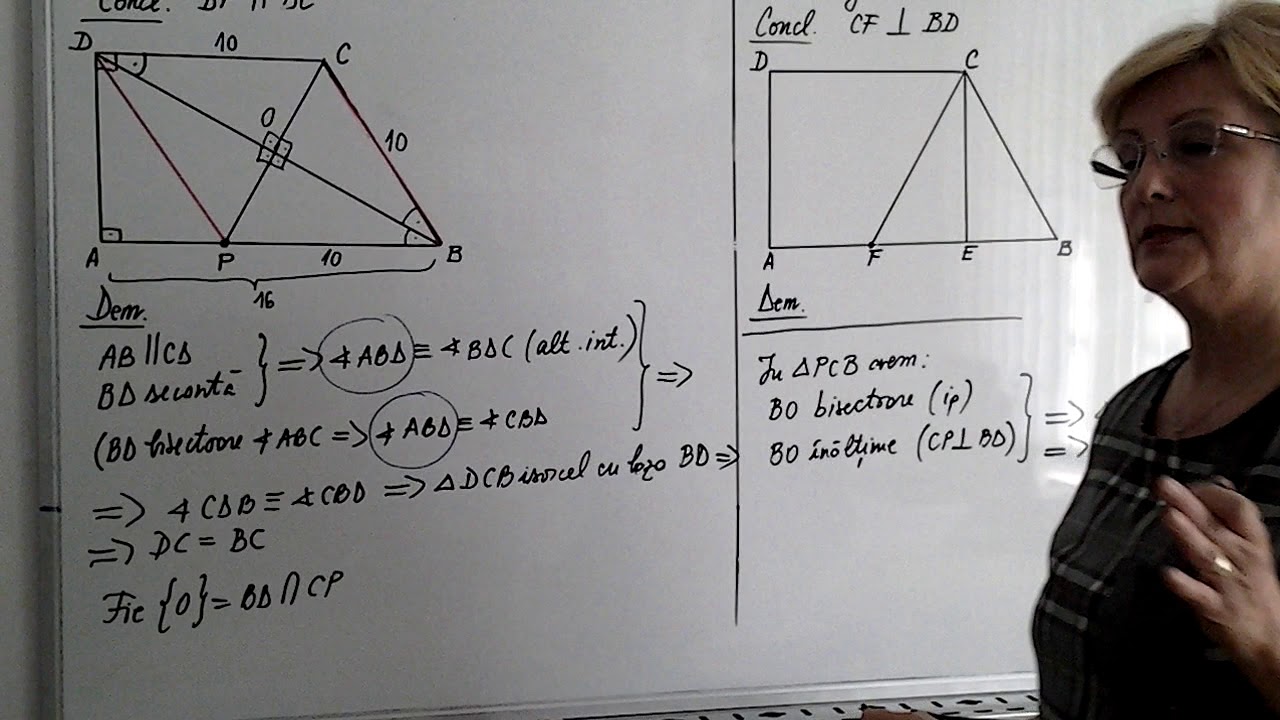 Concl. DP || BC
D 10 C
O
10
A P 10 B
16
Dem.
AB || CΔ
BΔ secantă } => ∢ABΔ ≡ ∢BΔC (alt. int.) } =>
(BD bisectoare ∢ABC => ∢ABΔ ≡ ∢CBΔ
=> ∢CΔB ≡ ∢CBΔ => ΔDCB isoscel cu baza BD =>
=> DC = BC
Fie {O} = BΔ ∩ CP
Concl. CF ⊥ BD
D C
A F E B
Dem.
În ΔPCB avem:
BO bisectoare (ip)
BO înălțime (CP⊥BD) } =>
=>